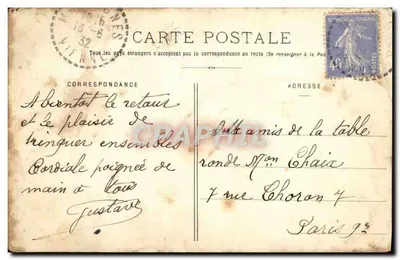 12-6
32
VIENNE
CARTE POSTALE
Tous les pays étrangers n'acceptent pas la correspondance au recto (Se renseigner à la Poste)
CORRESPONDANCE
ADRESSE
A bientôt le retour
et le plaisir de
trinquer ensembles
Cordiale poignée de
main à tous
Gustave
aux amis de la table
ronde Mon Chaix
7 rue Choron 7
Paris 9e
CPAPHIL